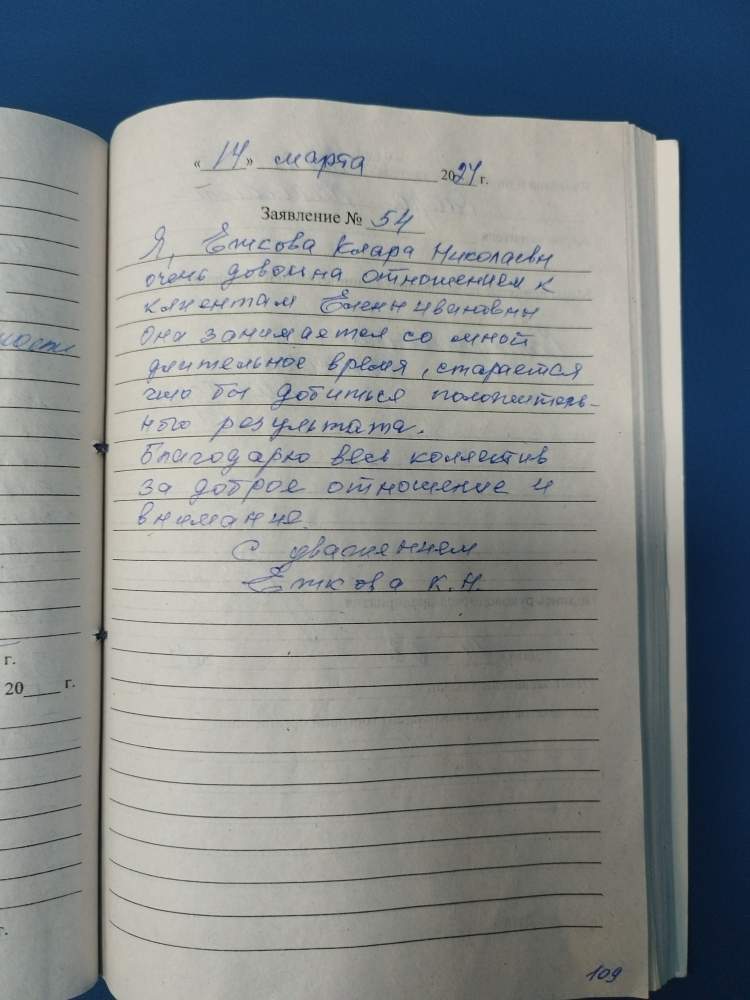 ности
г.
20____ г.
г.
«14» марта 2024 г.
Заявление № 54
Я, Ежкова Клара Николаевн
очень довольна отношением к
клиентам Елены Ивановны
Она занимается со мной
длительное время, старается
что бы добиться положитель-
ного результата.
Благодарю весь коллектив
за доброе отношение и
внимание.
С уважением
Ежкова К.Н.
109